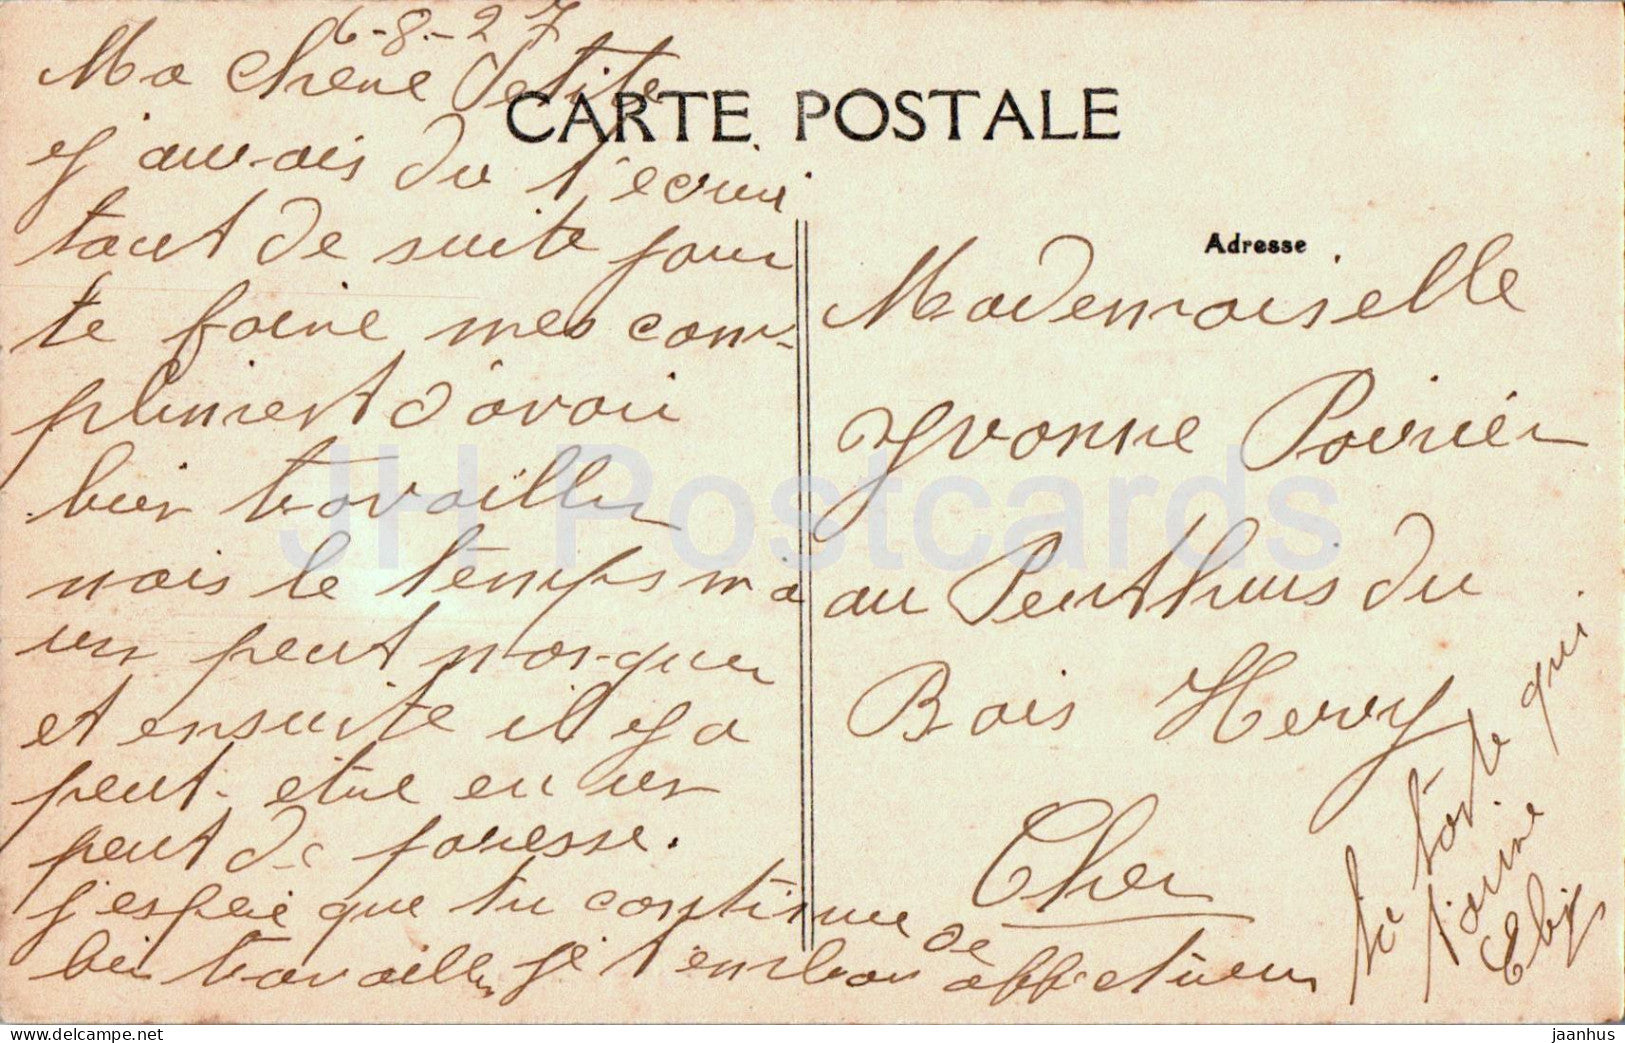 6-8-27
Ma chere Petite
CARTE POSTALE
j'auvais du t'ecrire
tout de suite pour
te faire mes com-
pliment d'avoir
bien travailler
mais le temps m'a
un peut manquer
et ensuite il y a
peut-etre eu un
peut de paresse.
j'espere que tu continue
bien travailler je t'embras de affectueu
Adresse
Mademoiselle
Yvonne Poirier
au Penthuis du
Bois Herry
Cher
ta tante qui
t'aime
JH Postcards
www.delcampe.net
jaanhus